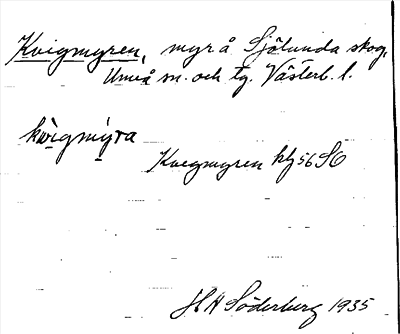 Kvigmyren, myr å Sjölunda skog,
Umeå sn. och tg. Västerb. l.
kwigmyra
Kvegmyren hfj 56 SO
H A Söderberg 1935